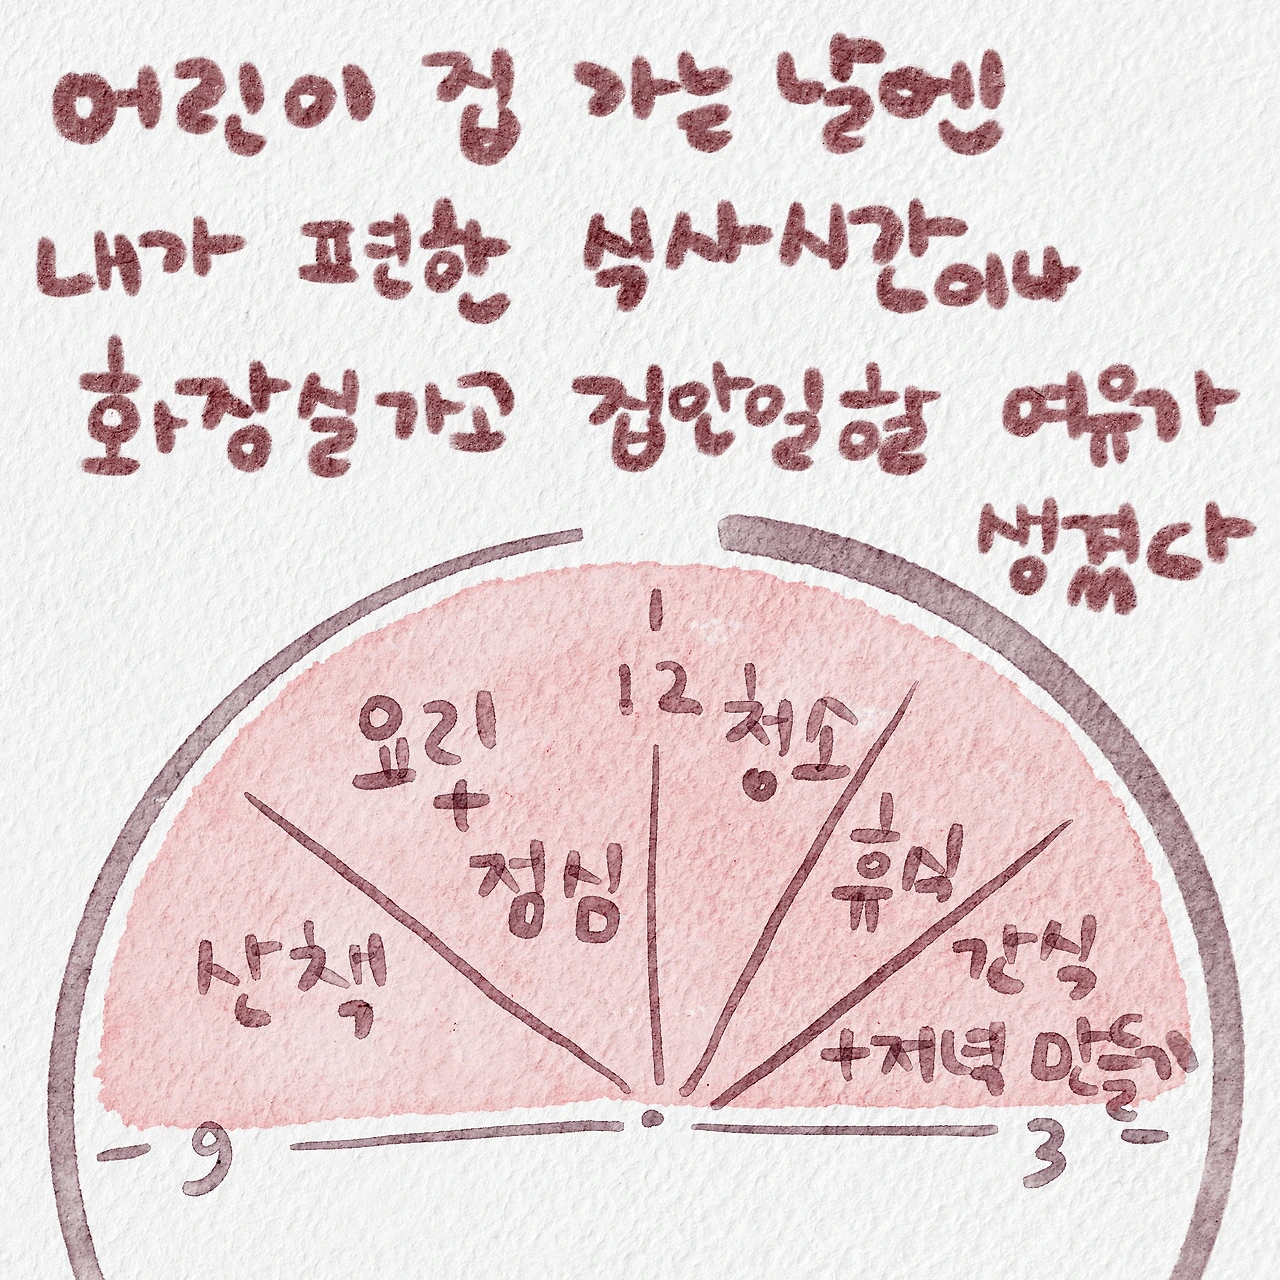 어린이 집 가는 날엔
내가 편한 식사시간이나
화장실가고 집안일할 여유가
생겼다
12
요리
+
정심
청소
휴식
산책
간식
+저녁 만들기
9
3